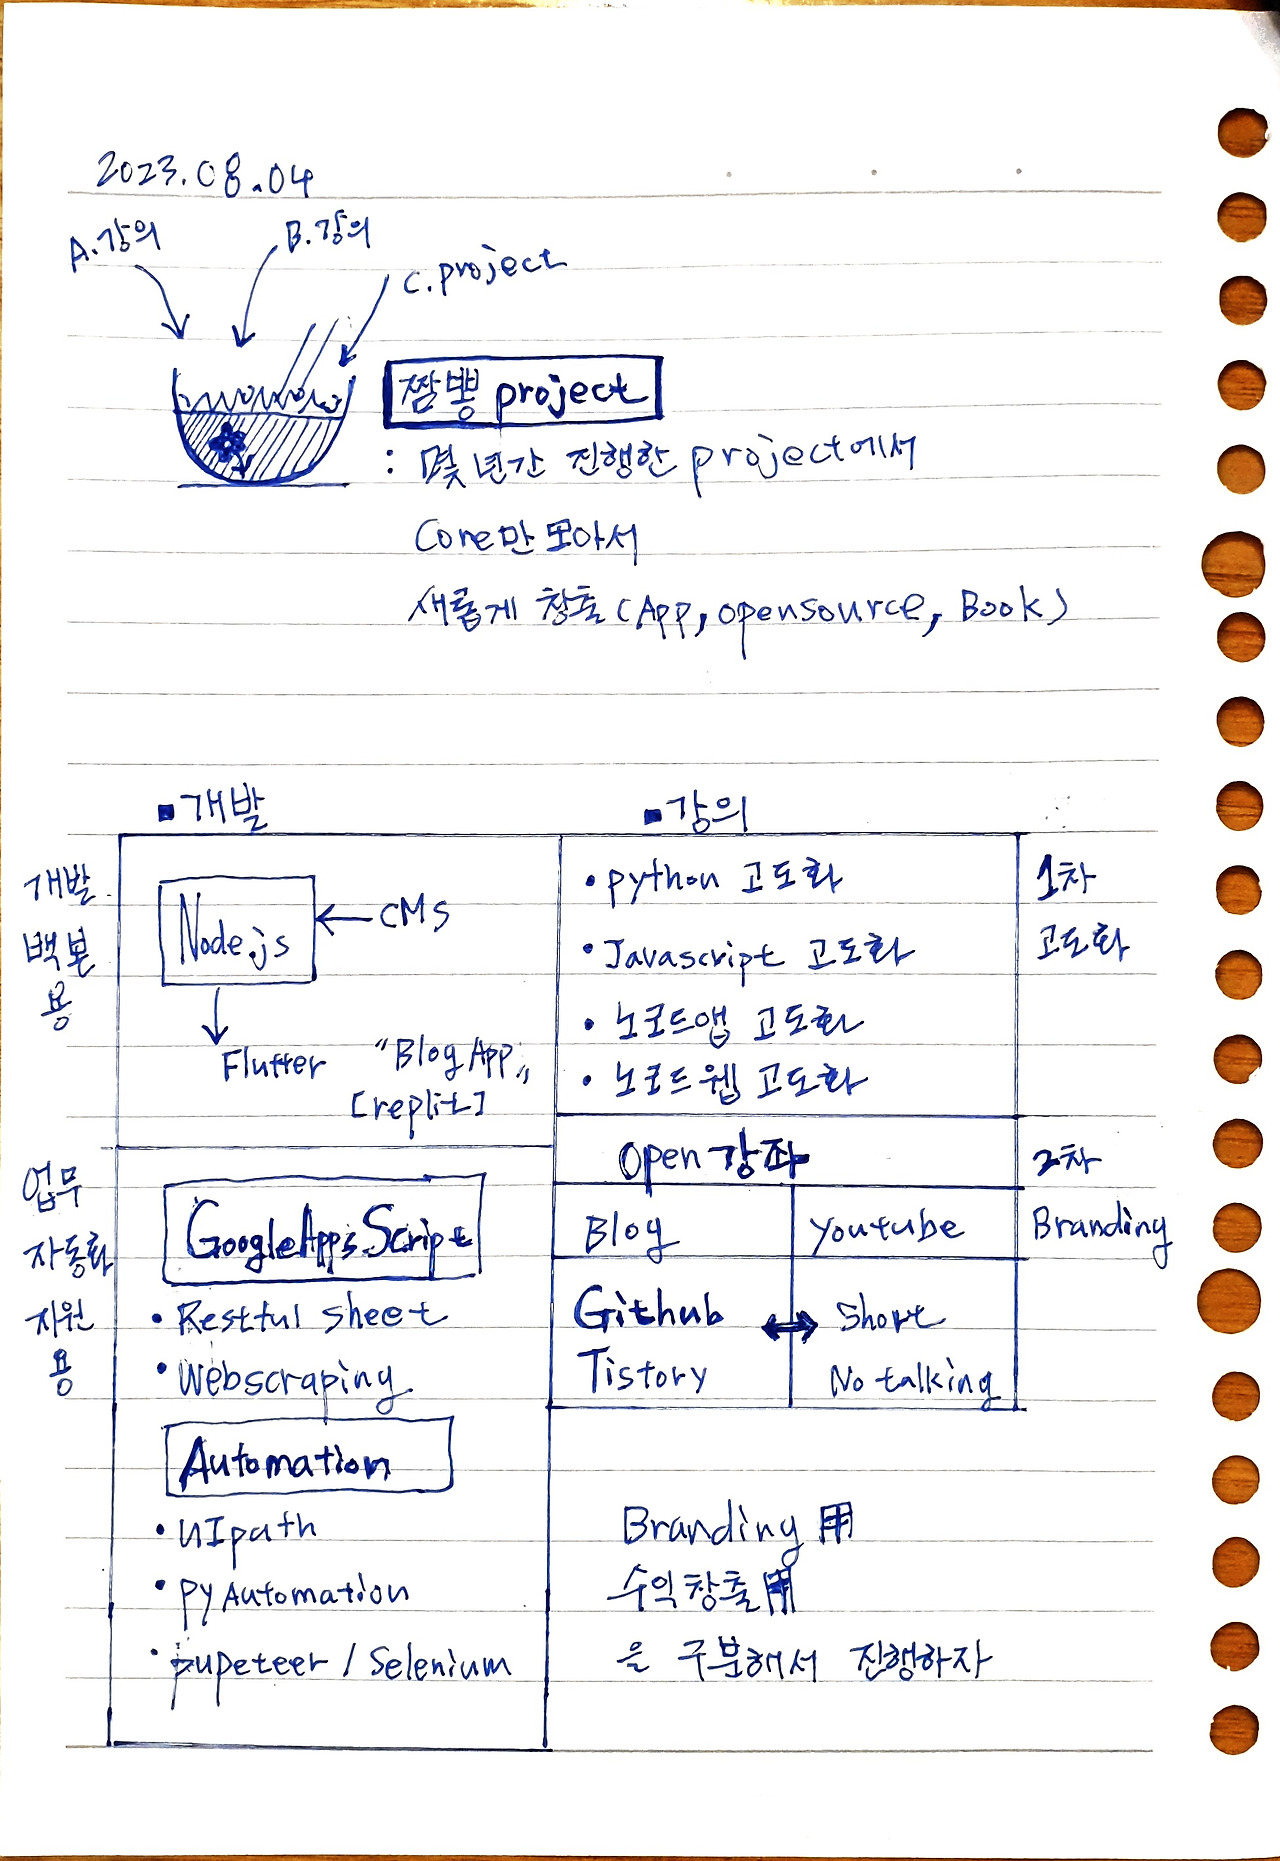 2023.08.04
A.강의
B.강의
C.project
짬뽕 project
: 몇 년간 진행한 project에서
Core만 모아서
새롭게 창출 (App, opensource, Book)
■개발
■강의
개발
백본
용
Node.js
CMS
Flutter
"Blog App"
[replit]
• python 고도화
• Javascript 고도화
• 노코드앱 고도화
• 노코드웹 고도화
1차
고도화
업무
자동화
지원
용
GoogleAppsScript
• Restful sheet
• Webscraping
Automation
• UIpath
• pyAutomation
• pupeteer / Selenium
Open 강좌
2차
Blog
Youtube
Branding
Github
↔
Short
Tistory
No talking
Branding 用
수익창출 用
을 구분해서 진행하자